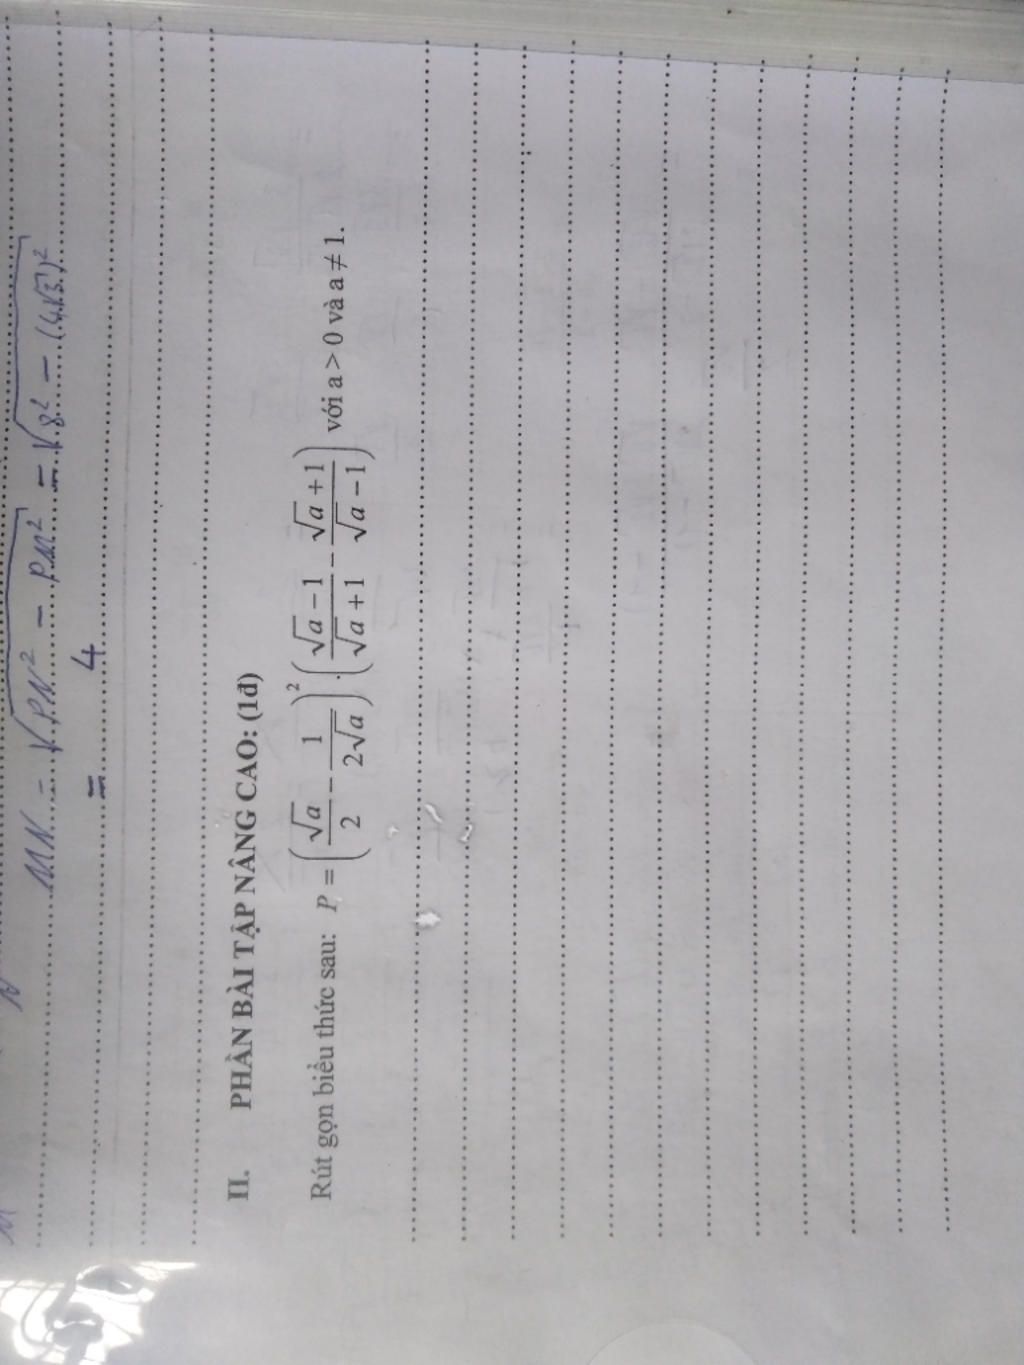 MN = √PN² - PM² = √8² - (4√3)²
= 4
II. PHẦN BÀI TẬP NÂNG CAO: (1đ)
Rút gọn biểu thức sau: P = (√a/2 - 1/2√a)² . (√a - 1/√a + 1 - √a + 1/√a - 1) với a > 0 và a ≠ 1.